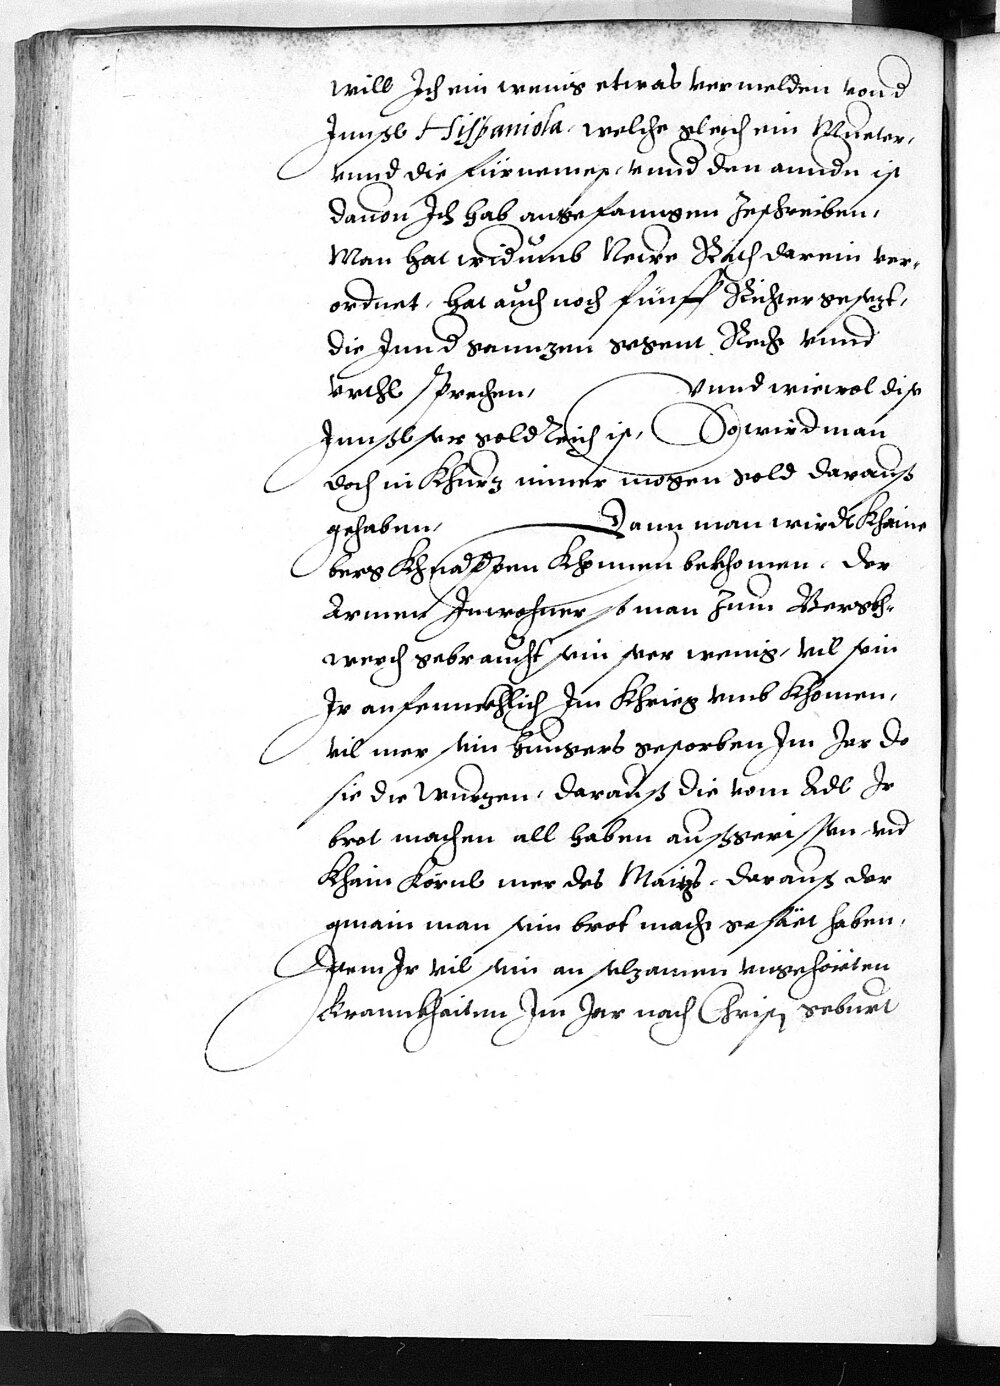 will Ich ein wenig etwas vermelden von d
Innsl Hispaniola, welche gleich ein Mueter,
vnnd die fürnemest, vnnd den anndn ist
dauon Ich hab angefanngen zeschreiben,
Man hat widumb Newe Räth darein ver-
ordnet, hat auch noch fünff Richter gesetzt,
die Inn d ganntzen gegent Recht vnnd
vrthl sprechen, Vnnd wiewol dise
Innsl ser gold Reich ist, So wird man
doch in Khurtz nimer mögen gold darauß
gehaben, Dann man wirdt khaine
berg Khnappen khönnen bekhomen, der
Armen Inwohner so man zum Bergkh-
werch gebraucht sein ser wenig, vil sein
Ir anfenncklich Im Khrieg vmb khomen,
vil mer sein hungers gestorben Im Jar do
sie die wurtzen, darauß die vom Adl Ir
brot machen all haben außgerissen vnd
khain körnl mer des Maitz, darauß der
gmain man sein brot macht gesäet haben,
Item Ir vil sein an seltzamen vngehörten
Krannkhaiten Im Jar nach Christi geburt